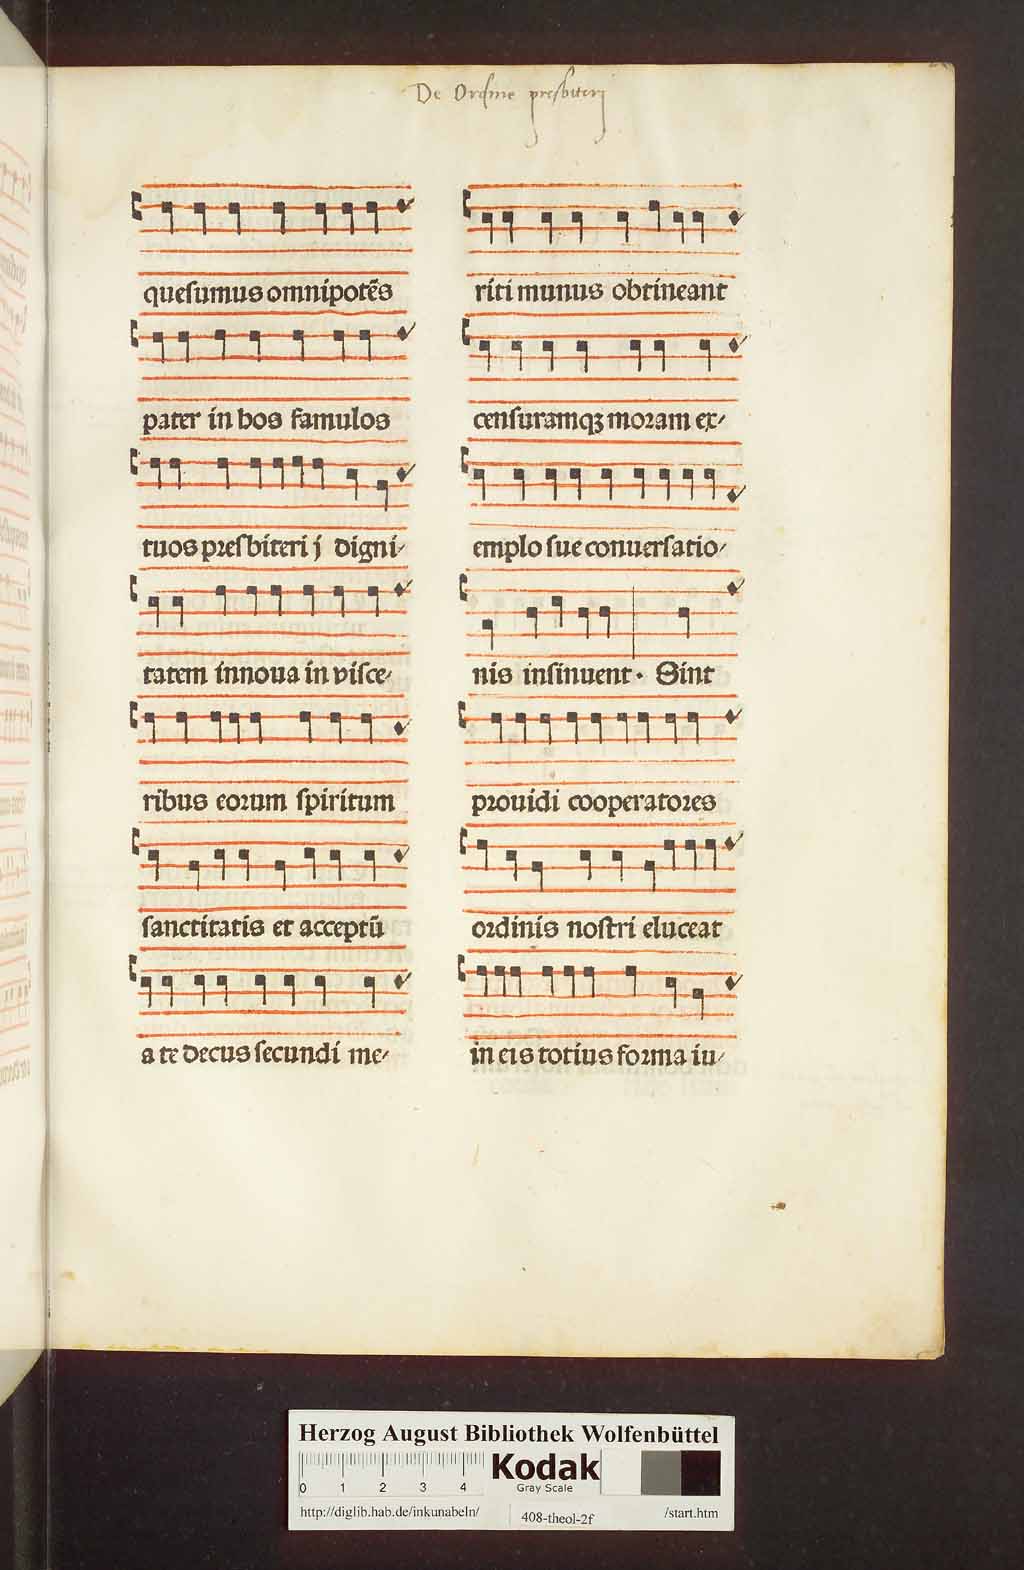 De Ordine presbiteri
quesumus omnipotẽs
pater in hos famulos
tuos presbiterij digni-
tatem innoua in visce-
ribus eorum spiritum
sanctitatis et acceptũ
a te decus secundi me-
riti munus obtineant
censuramqꝫ moram ex-
emplo sue conuersatio-
nis insinuent. Sint
prouidi cooperatores
ordinis nostri eluceat
in eis totius forma iu-
Herzog August Bibliothek Wolfenbüttel
0 1 2 3 4
Kodak
Gray Scale
http://diglib.hab.de/inkunabeln/ 408-theol-2f /start.htm